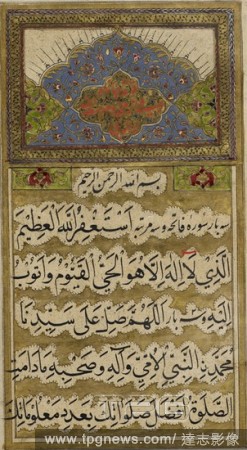 بسم الله الرحمن الرحيم
سه بار سوره فاتحه وسه مرتبه استغفر الله العظيم
الذي لا اله الا هو الحي القيوم واتوب
اليه وسه بار اللهم صل على سيدنا
محمد ن النبي الامي وآله وصحبه مادامت
الصلوة افضل صلواتك بعدد معلوماتك
www.tpgnews.com / 達志影像